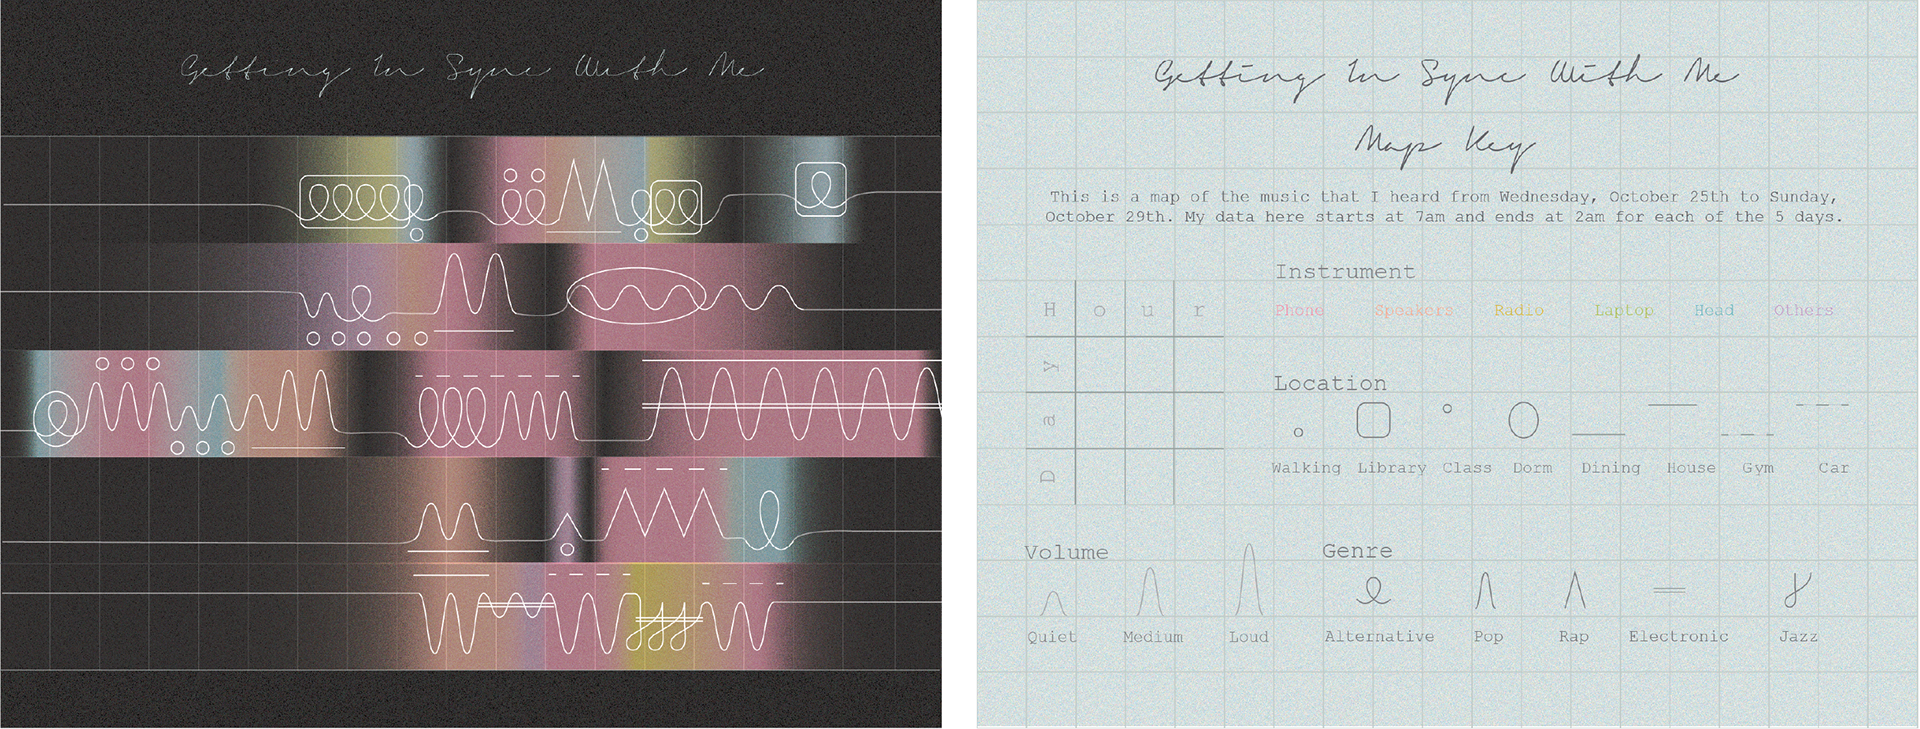 Getting In Sync With Me
Getting In Sync With Me
Map Key
This is a map of the music that I heard from Wednesday, October 25th to Sunday,
October 29th. My data here starts at 7am and ends at 2am for each of the 5 days.
Hour
Day
Instrument
Phone Speakers Radio Laptop Head Others
Location
Walking Library Class Dorm Dining House Gym Car
Volume
Quiet Medium Loud
Genre
Alternative Pop Rap Electronic Jazz